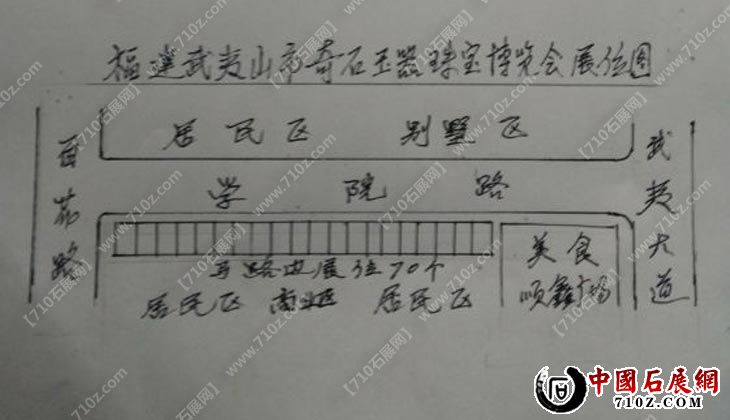 福建武夷山市奇石玉器珠宝博览会展位图
百花路
居民区 别墅区
武夷大道
学院路
马路边展位70个
美食
顺鑫广场
居民区 商业区 居民区
【710石展网】
www.710z.com
中國石展網
710Z.COM